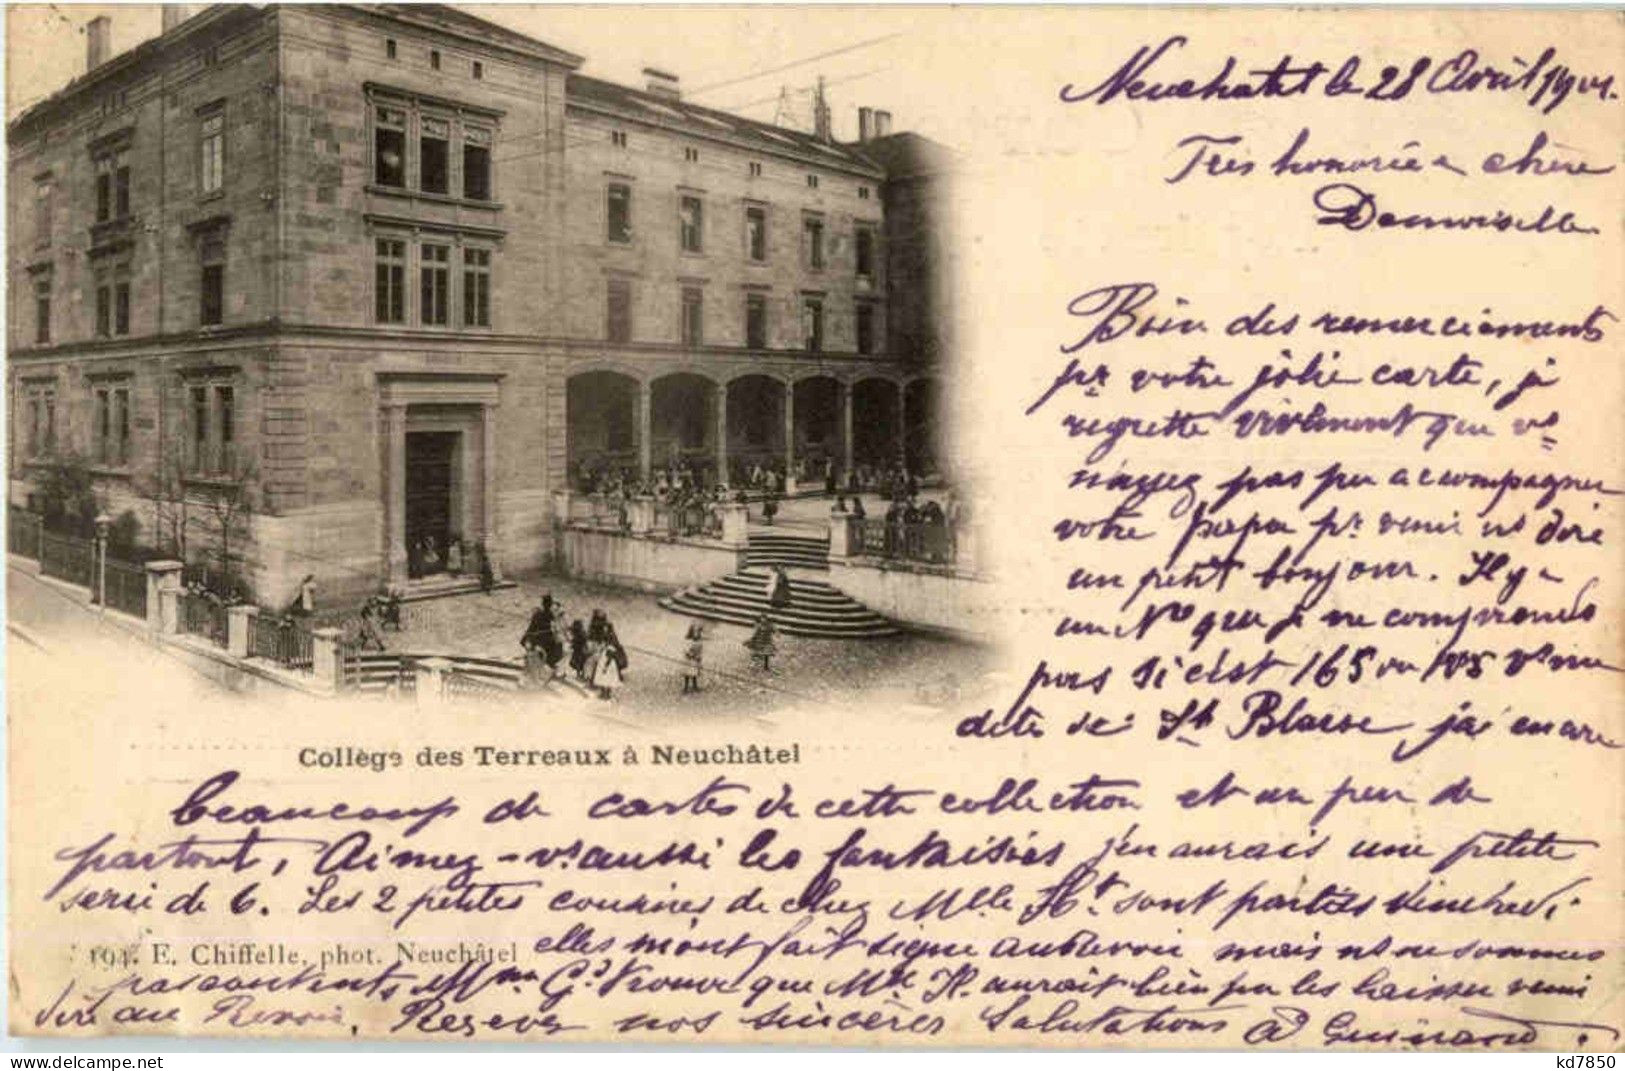 Neuchatel le 28 Avril 1901.
Très honorée & chère
Demoiselle
Bien des remerciements
pr votre jolie carte, je
regrette vivement que vs
n'ayez pas pu accompagner
votre papa pr venir ns dire
un petit bonjour. Il y a
un No que je ne comprends
pas si c'est 165 ou 105 vs me
dites de St Blaise j'ai encore
Collège des Terreaux à Neuchâtel
beaucoup de cartes de cette collection et un peu de
partout, Aimez-vs aussi les fantaisies j'en aurais une petite
serie de 6. Les 2 petites cousines de chez Mlle Ht. sont parties Vendredi
194. E. Chiffelle, phot. Neuchâtel
elles m'ont fait signe au revoir mais ns ne sommes
pas contents, Mme Gd trouve que Mlle H. aurait bien pu les laisser venir
dire au Revoir. Recevez nos sincères Salutations A Guinand.
kd7850